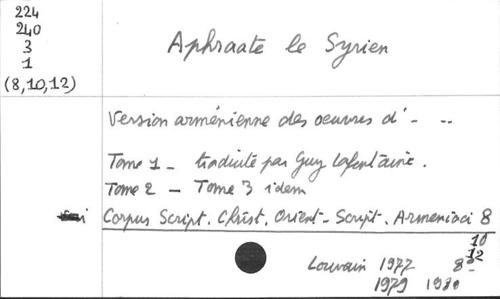 224
240
3
1
(8,10,12)
Aphraate le Syrien
Version arménienne des oeuvres d' - ..
Tome 1 - traduite par Guy Lafontaine.
Tome 2 - Tome 3 idem
Corpus Script. Christ. Orient - Script. Armeniaci 8
10
12
Louvain 1977 8°
1979 1980